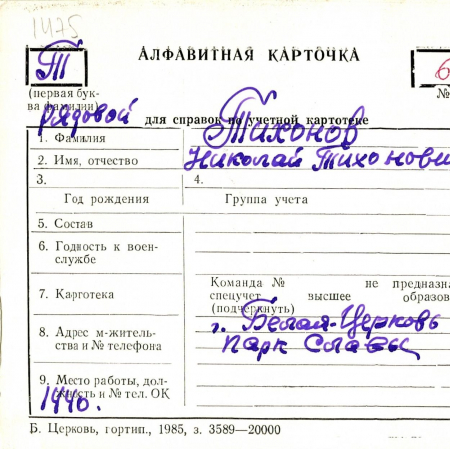 1475
Т АЛФАВИТНАЯ КАРТОЧКА 6
(первая бук-
ва фамилии) №
рядовой для справок по учетной картотеке
1. Фамилия Тихонов
2. Имя, отчество Николай Тихонови
3. 4.
Год рождения Группа учета
5. Состав
6. Годность к воен-
службе
Команда № не предназна
7. Карготека спецучет, высшее образов
(подчеркнуть)
8. Адрес м-житель- г. Белая-Церковь
ства и № телефона парк Славы
9. Место работы, дол-
жность и № тел. ОК
1440.
Б. Церковь, гортип., 1985, з. 3589—20000